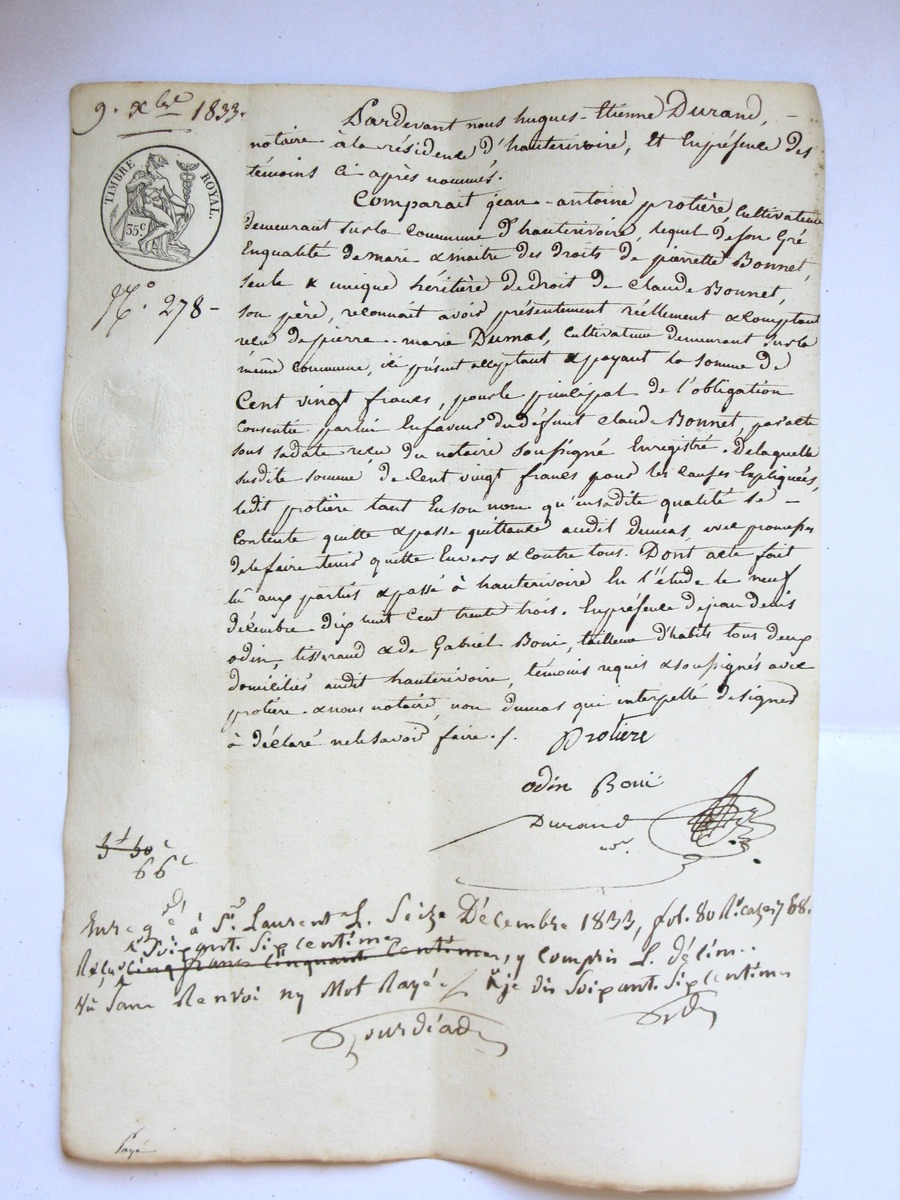 9. xbre 1833.
TIMBRE ROYAL.
35c
No. 278-
Pardevant nous hugues-Etienne Durand,
notaire à la résidence d'hauterivoire, Et Enprésence des
témoins Ci après nommés.
Comparait jean-antoine protière Cultivateur
demeurant sur la Commune d'hauterivoire, lequel de son Gré
Enqualité de mari & maitre des droits de pierrette Bonnet,
seule & unique héritière de droit de Claude Bonnet,
son père, reconnait avoir présentement réellement & Comptant
reçu de pierre-marie Dumas, Cultivateur demeurant sur la
même Commune, ici présent acceptant & payant la somme de
Cent vingt francs, pour le principal de l'obligation
Consentie par lui Enfaveur du défunt Claude Bonnet, par acte
sous sa date reçu du notaire soussigné Enregistré. De laquelle
susdite somme de Cent vingt francs pour les Causes Expliquées,
ledit protière tant En son nom qu'ensadite qualité se
Contente quitte & passe quittance audit Dumas, avec promesse
de le faire tenir quitte Envers & Contre tous. Dont acte fait
lû aux parties & passé à hauterivoire En l'étude le neuf
décembre dix huit Cent trente trois. Enprésence de jean denis
odin, tisserand & de Gabriel Boni, tailleur d'habits tous deux
domiciliés audit hauterivoire, témoins requis & soussignés avec
protière & nous notaire, non dumas qui interpellé de signer
à déclaré ne le savoir faire ./.
Protiere
odin Boni
Durand
nre.
5f 50c
66c
Enregé à St. Laurent L. Seize Décembre 1833, fol. 80 Ro. Cazes 7 & 8.
Reçu Soixant. Six Centimes
Cinq francs Cinquant Centimes, y Compris L. décim.
Vu Sans Renvoi ny Mot Rayé. je dis Soixant. Six Centimes
Payé